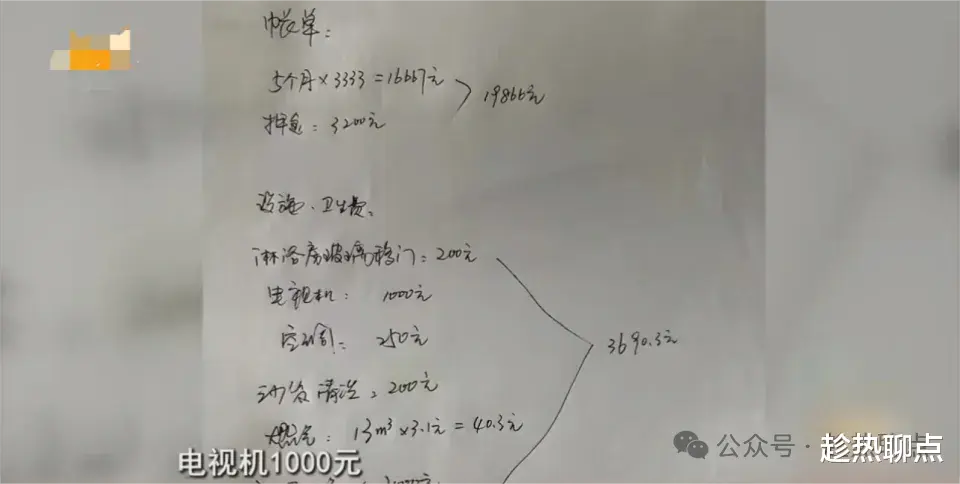 帐单：
5个月×3333=16667元
19866元
押金：3200元
设施、卫生费：
淋浴房玻璃移门：200元
电视机：1000元
空调：250元
3690.3元
沙发清洗：200元
燃气：13m³×3.1元=40.3元
电视机1000元
公众号·
趁热聊点